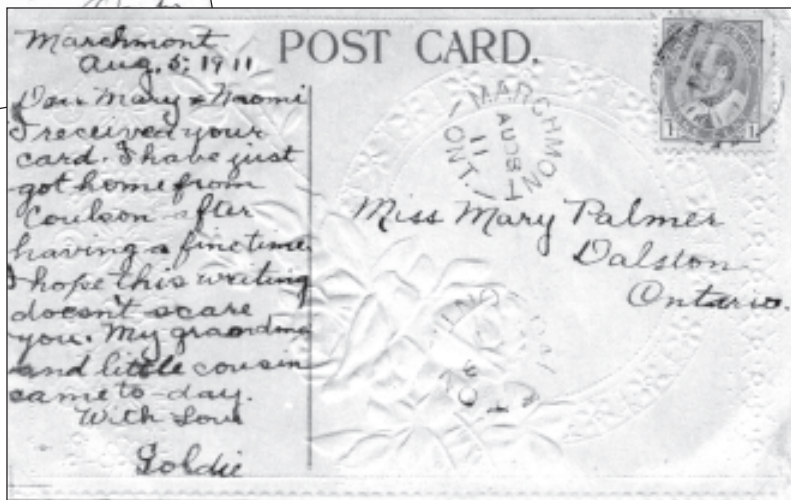 POST CARD.
Marchmont
Aug. 5, 1911
Dear Mary & Naomi
I received your
card. I have just
got home from
Coulson after
having a fine time
I hope this writing
doesn't scare
you. My grandma
and little cousin
came to-day.
With Love
Goldie
MARCHMONT
AUG 8
11
ONT
Miss Mary Palmer
Dalston
Ontario.
1 1
ONT